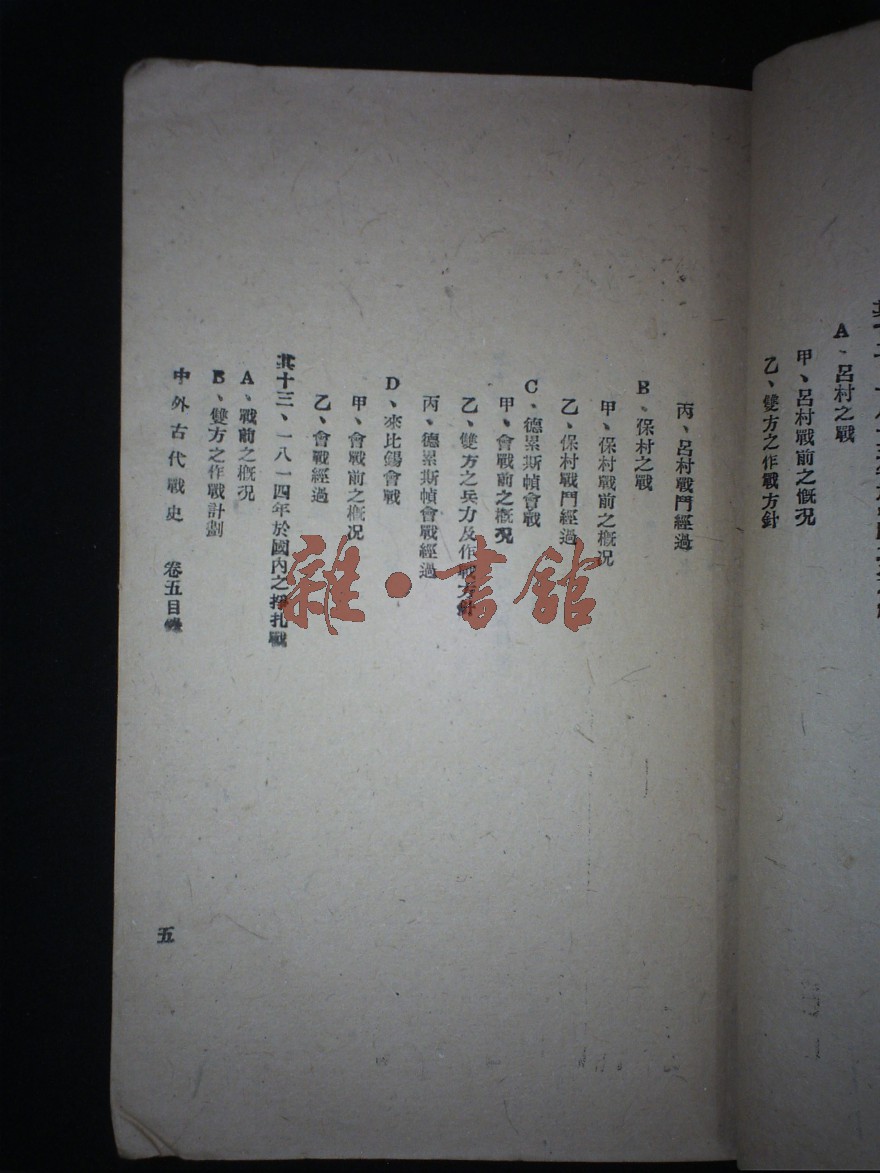 A、呂村之戰
甲、呂村戰前之概况
乙、雙方之作戰方針
丙、呂村戰鬥經過
B、保村之戰
甲、保村戰前之概况
乙、保村戰鬥經過
C、德累斯幀會戰
甲、會戰前之概况
乙、雙方之兵力及作戰方針
丙、德累斯幀會戰經過
D、來比錫會戰
甲、會戰前之概况
乙、會戰經過
其十三、一八一四年於國內之掙扎戰
A、戰前之概况
B、雙方之作戰計劃
中外古代戰史 卷五目錄
五
雜·書館